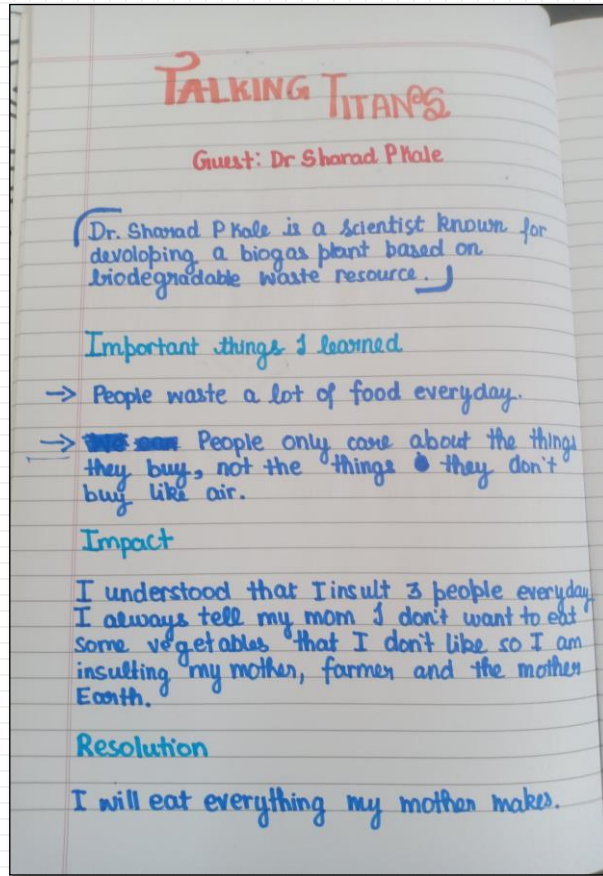 TALKING TITANS
Guest: Dr Sharad P Kale
Dr. Sharad P Kale is a scientist known for
devoloping a biogas plant based on
biodegradable waste resource.
Important things I learned
→ People waste a lot of food everyday.
→ People only care about the things
they buy, not the things they don't
buy like air.
Impact
I understood that I insult 3 people everyday
I always tell my mom I don't want to eat
some vegetables that I don't like so I am
insulting my mother, farmer and the mother
Earth.
Resolution
I will eat everything my mother makes.